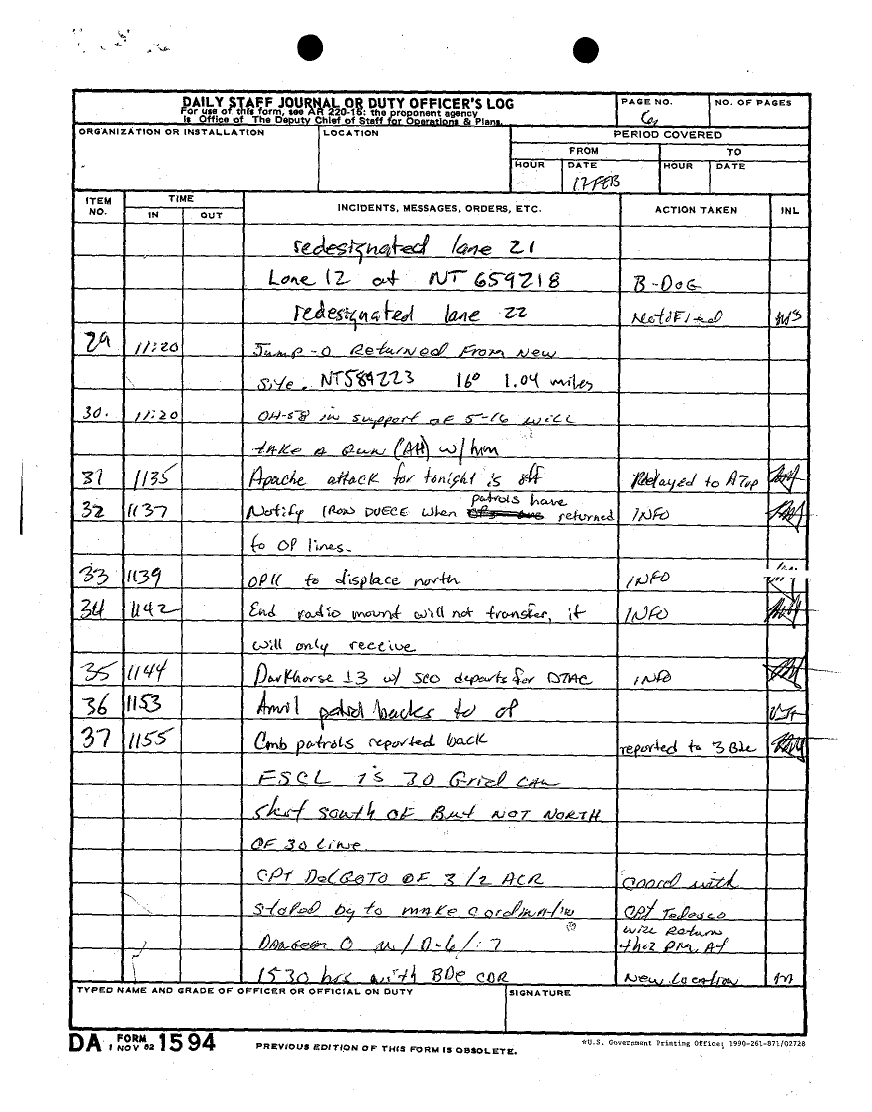 DAILY STAFF JOURNAL OR DUTY OFFICER'S LOG
For use of this form, see AR 220-15: the proponent agency
is Office of The Deputy Chief of Staff for Operations & Plans.
PAGE NO.
NO. OF PAGES
ORGANIZATION OR INSTALLATION
LOCATION
PERIOD COVERED
FROM
TO
HOUR
DATE
HOUR
DATE
17 FEB
ITEM NO.
TIME
IN
OUT
INCIDENTS, MESSAGES, ORDERS, ETC.
ACTION TAKEN
INL
redesignated lane 21
Lane 12 at NT 659218 B-DOG
redesignated lane 22 Notified
29 11:20 Jump-O Returned From New
Site. NT589223 16° 1.04 miles
30. 11:20 OH-58 in support of 5-16 will
take a Run (AH) w/him
31 1135 Apache attack for tonight is off Relayed to ATOP
32 1137 Notify IRON DUECE when patrols have returned INFO
to OP lines.
33 1139 OP11 to displace north INFO
34 1142 End radio mount will not transfer, it INFO
will only receive
35 1144 Darkhorse 13 w/ SCO departs for DTAC INFO
36 1153 patrol backs to OP
37 1155 Cmb patrols reported back reported to 3 Bde
FSCL is 30 Grid can
shot south of But NOT NORTH
OF 30 line.
CPT DelGOTO OF 3/2 ACR coord with
stoped by to make cordination CPT Tedesco
O w/ D-6/.7 will Return this PM. At
1530 hrs with BDe CDR New Location
TYPED NAME AND GRADE OF OFFICER OR OFFICIAL ON DUTY
SIGNATURE
DA FORM 1594
1 NOV 62
PREVIOUS EDITION OF THIS FORM IS OBSOLETE.
*U.S. Government Printing Office: 1990-261-871/02728